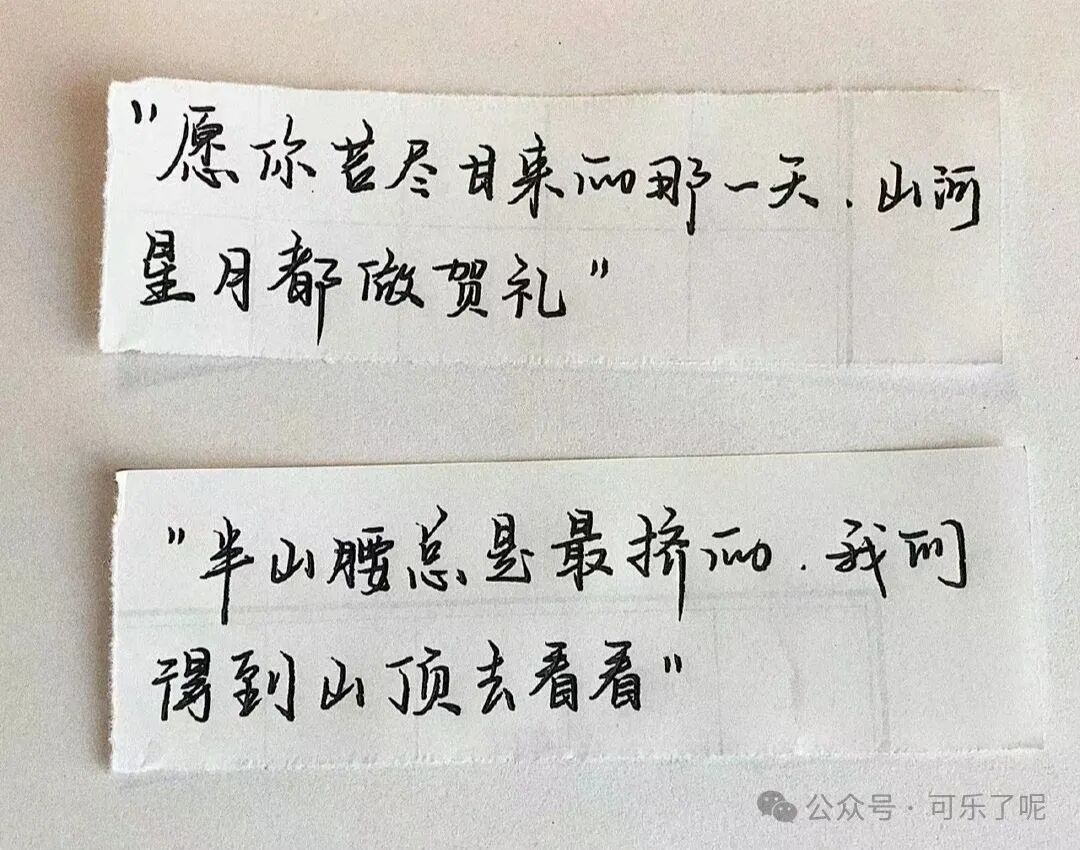 "愿你苦尽甘来的那一天.山河
星月都做贺礼"
"半山腰总是最挤的.我们
得到山顶去看看"
公众号·可乐了呢